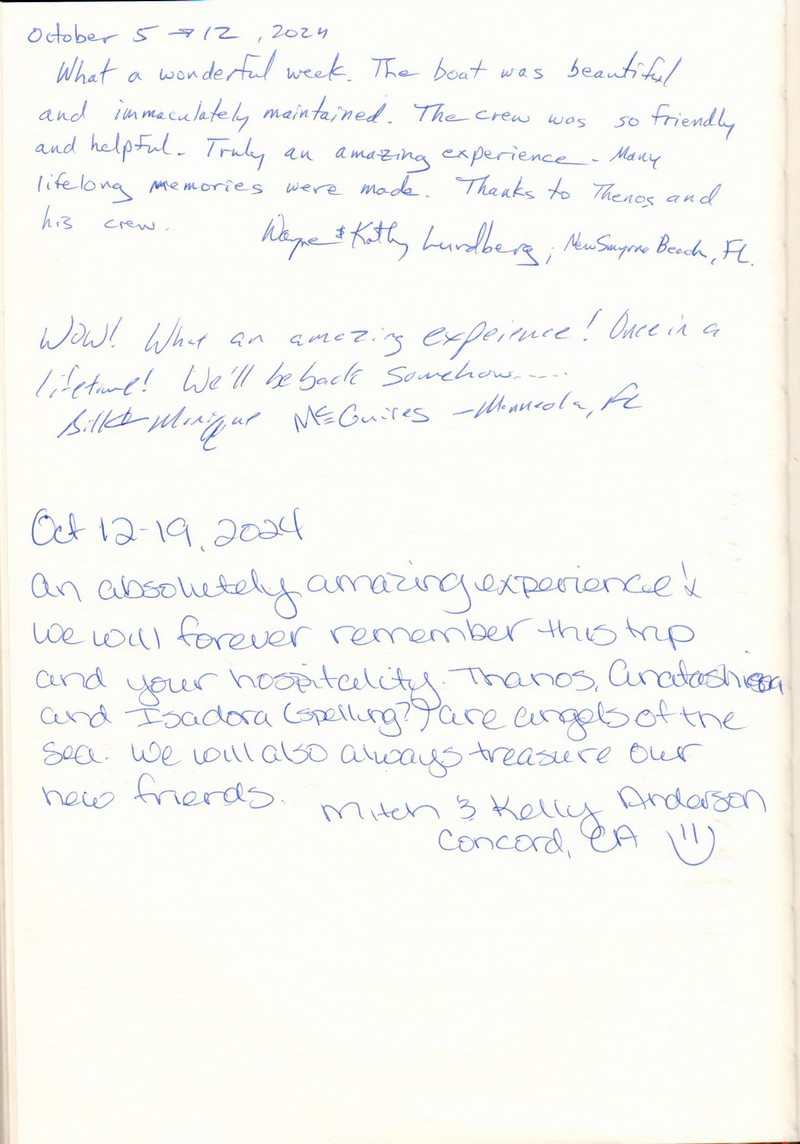 October 5 → 12, 2024
What a wonderful week. The boat was beautiful
and immaculately maintained. The crew was so friendly
and helpful. Truly an amazing experience. Many
lifelong memories were made. Thanks to Thenos and
his crew.
Wayne & Kathy Lundberg; New Smyrna Beach, FL.
WOW! What an amazing expeience! Once in a
lifetime! We'll be back Somehow.....
Bill & Monique McGuires – Minneola, FL
Oct 12-19, 2024
An absolutely amazing experience!
We will forever remember this trip
and your hospitality. Thanos,
and Isadora (spelling?) are angels of the
sea. We will also always treasure our
new friends.
Mitch & Kelly Anderson
Concord, CA